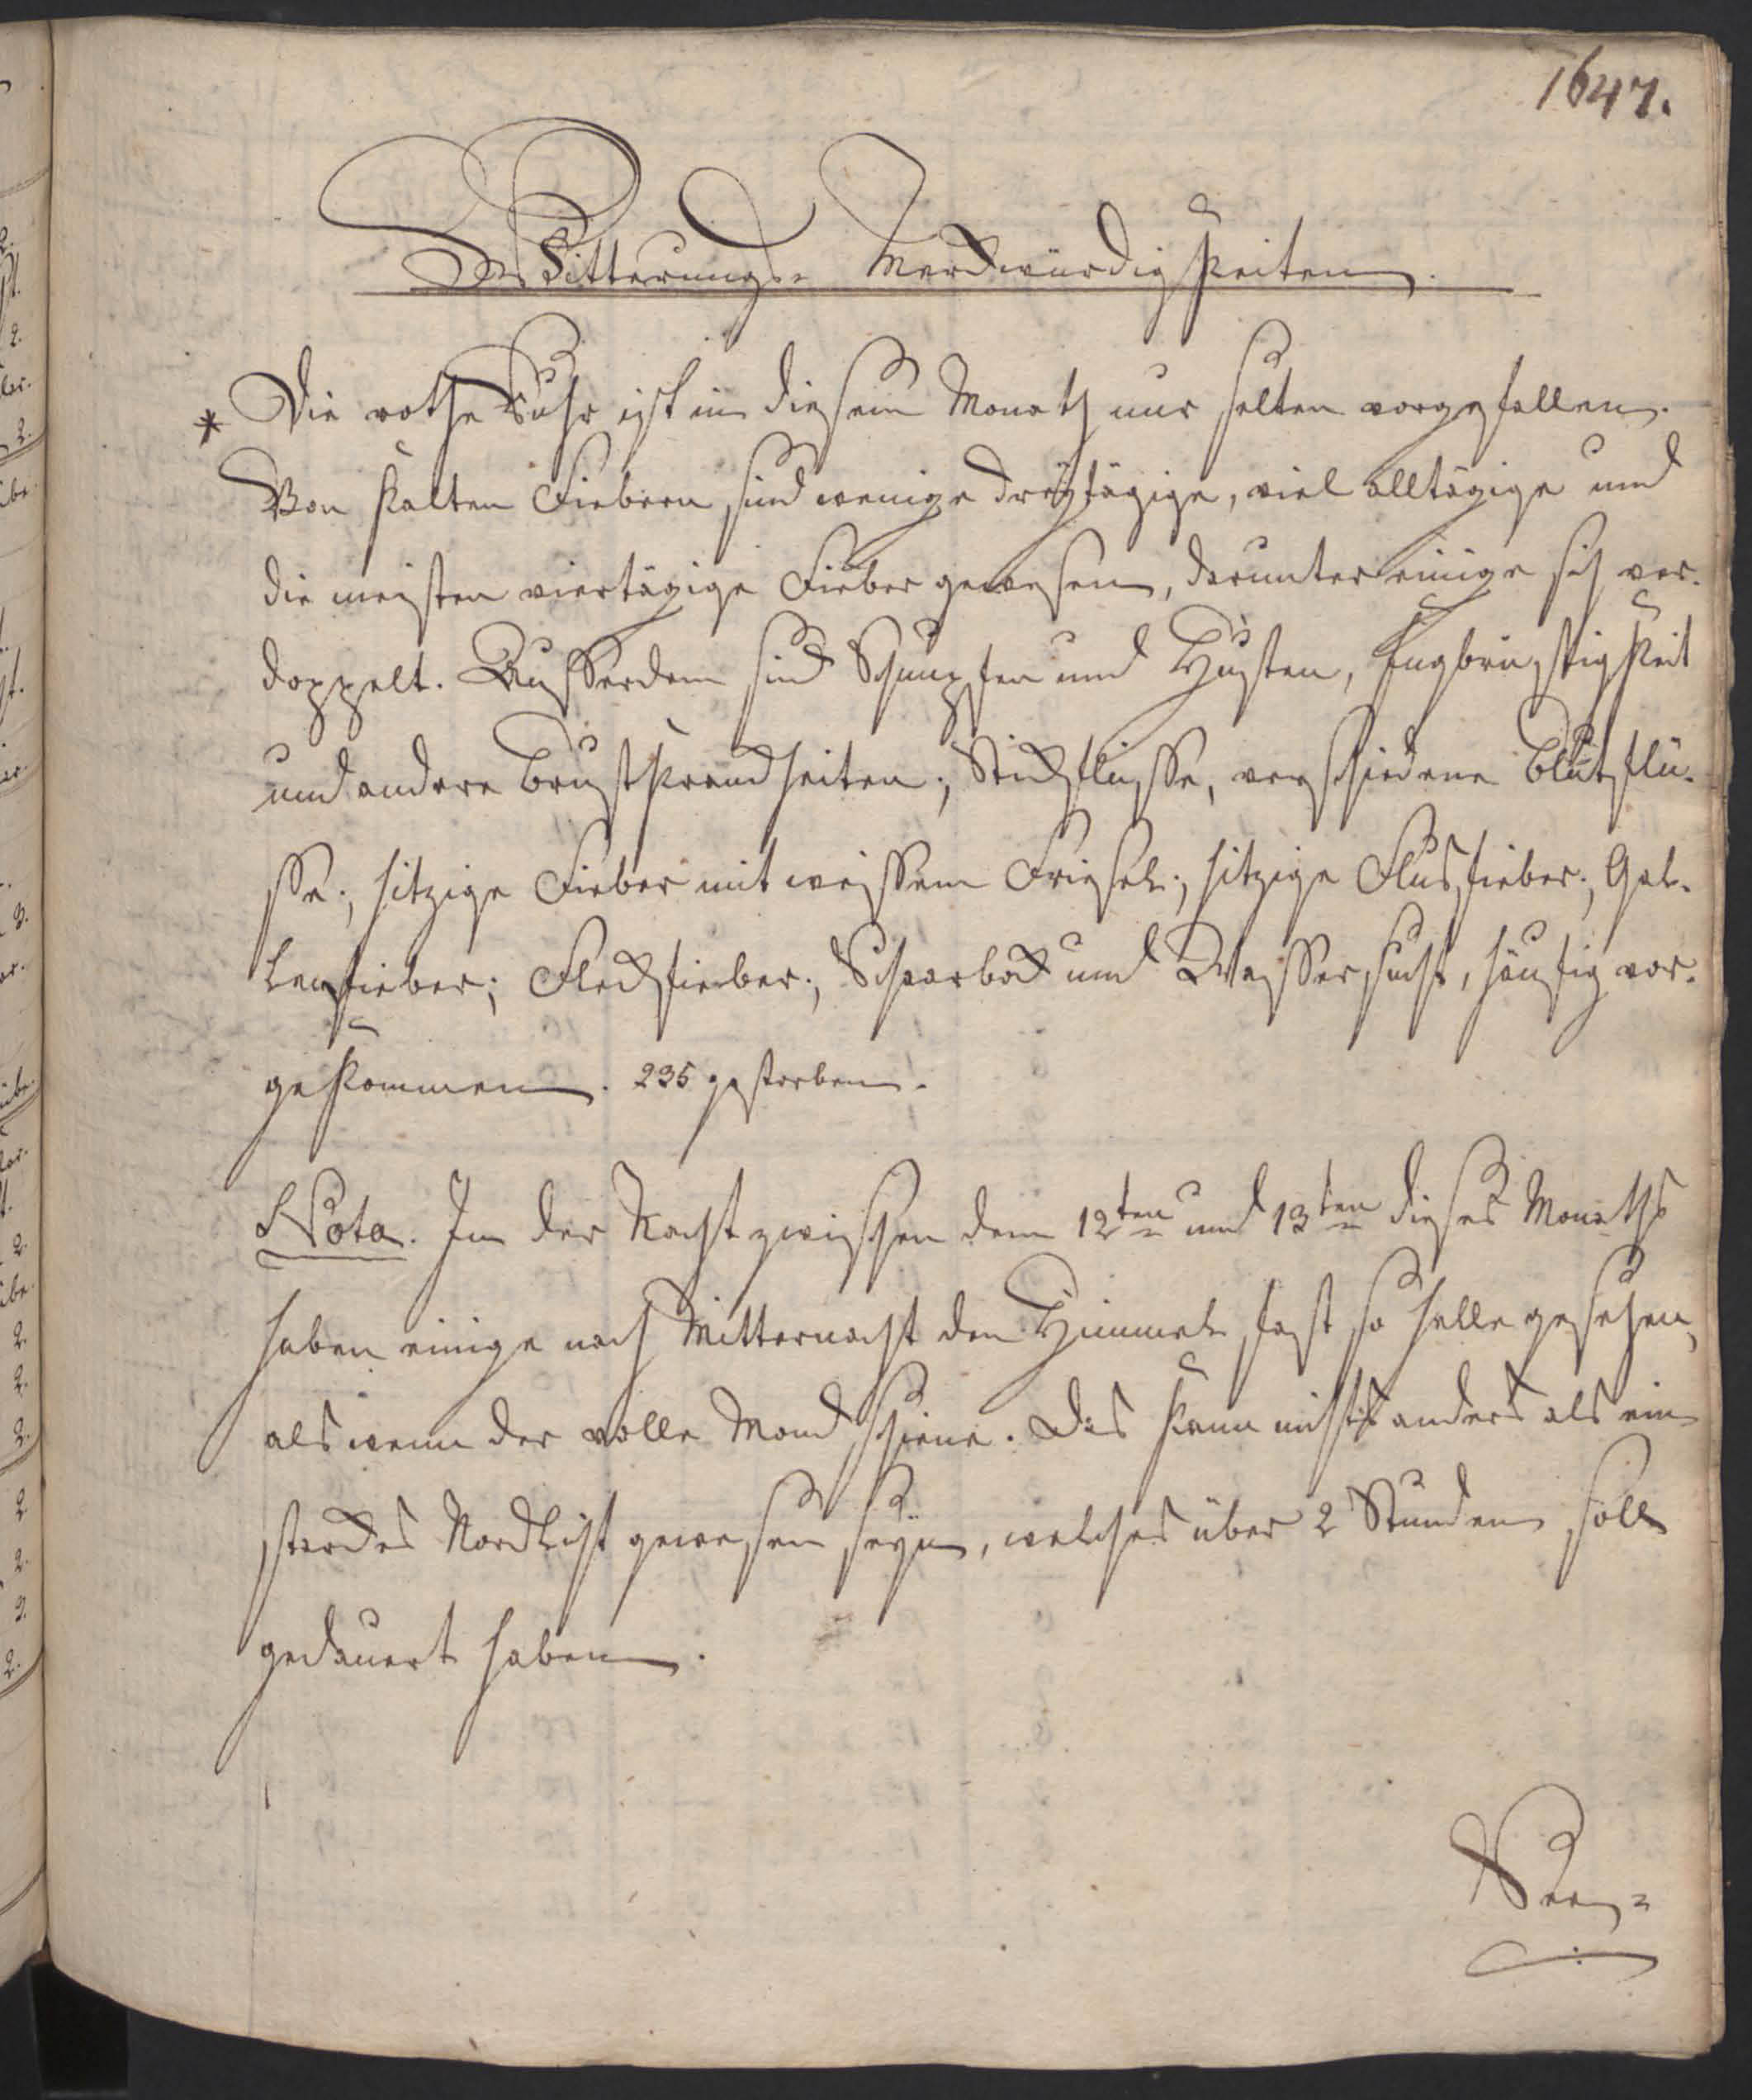 1647.
Witterungs- Merckwürdigkeiten.
* Die rothe Ruhr ist in diesem Monath nur selten vorgefallen.
Von kalten Fiebern sind wenige dreytägige, viel alltägige und
die meisten viertägige Fieber gewesen, darunter einige sich ver-
doppelt. Ausserdem sind Schnupfen und Husten, Engbrüstigkeit
und andere Brustkranckheiten; Stickflüsse, verschiedene Blutflü-
sse; hitzige Fieber mit weissem Friesel; hitzige Flusfieber; Gal-
lenfieber; Fleckfieber; Scharbock und Wassersucht, häufig vor-
gekommen. 235 gestorben.
Nota. In der Nacht zwischen dem 12ten und 13ten dieses Monaths
haben einige nach Mitternacht den Himmel fast so helle gesehen,
als wenn der volle Mond schiene. Das kann nichts anders als ein
starckes Nordlicht gewesen seyn, welches über 2 Stunden soll
gedauert haben.